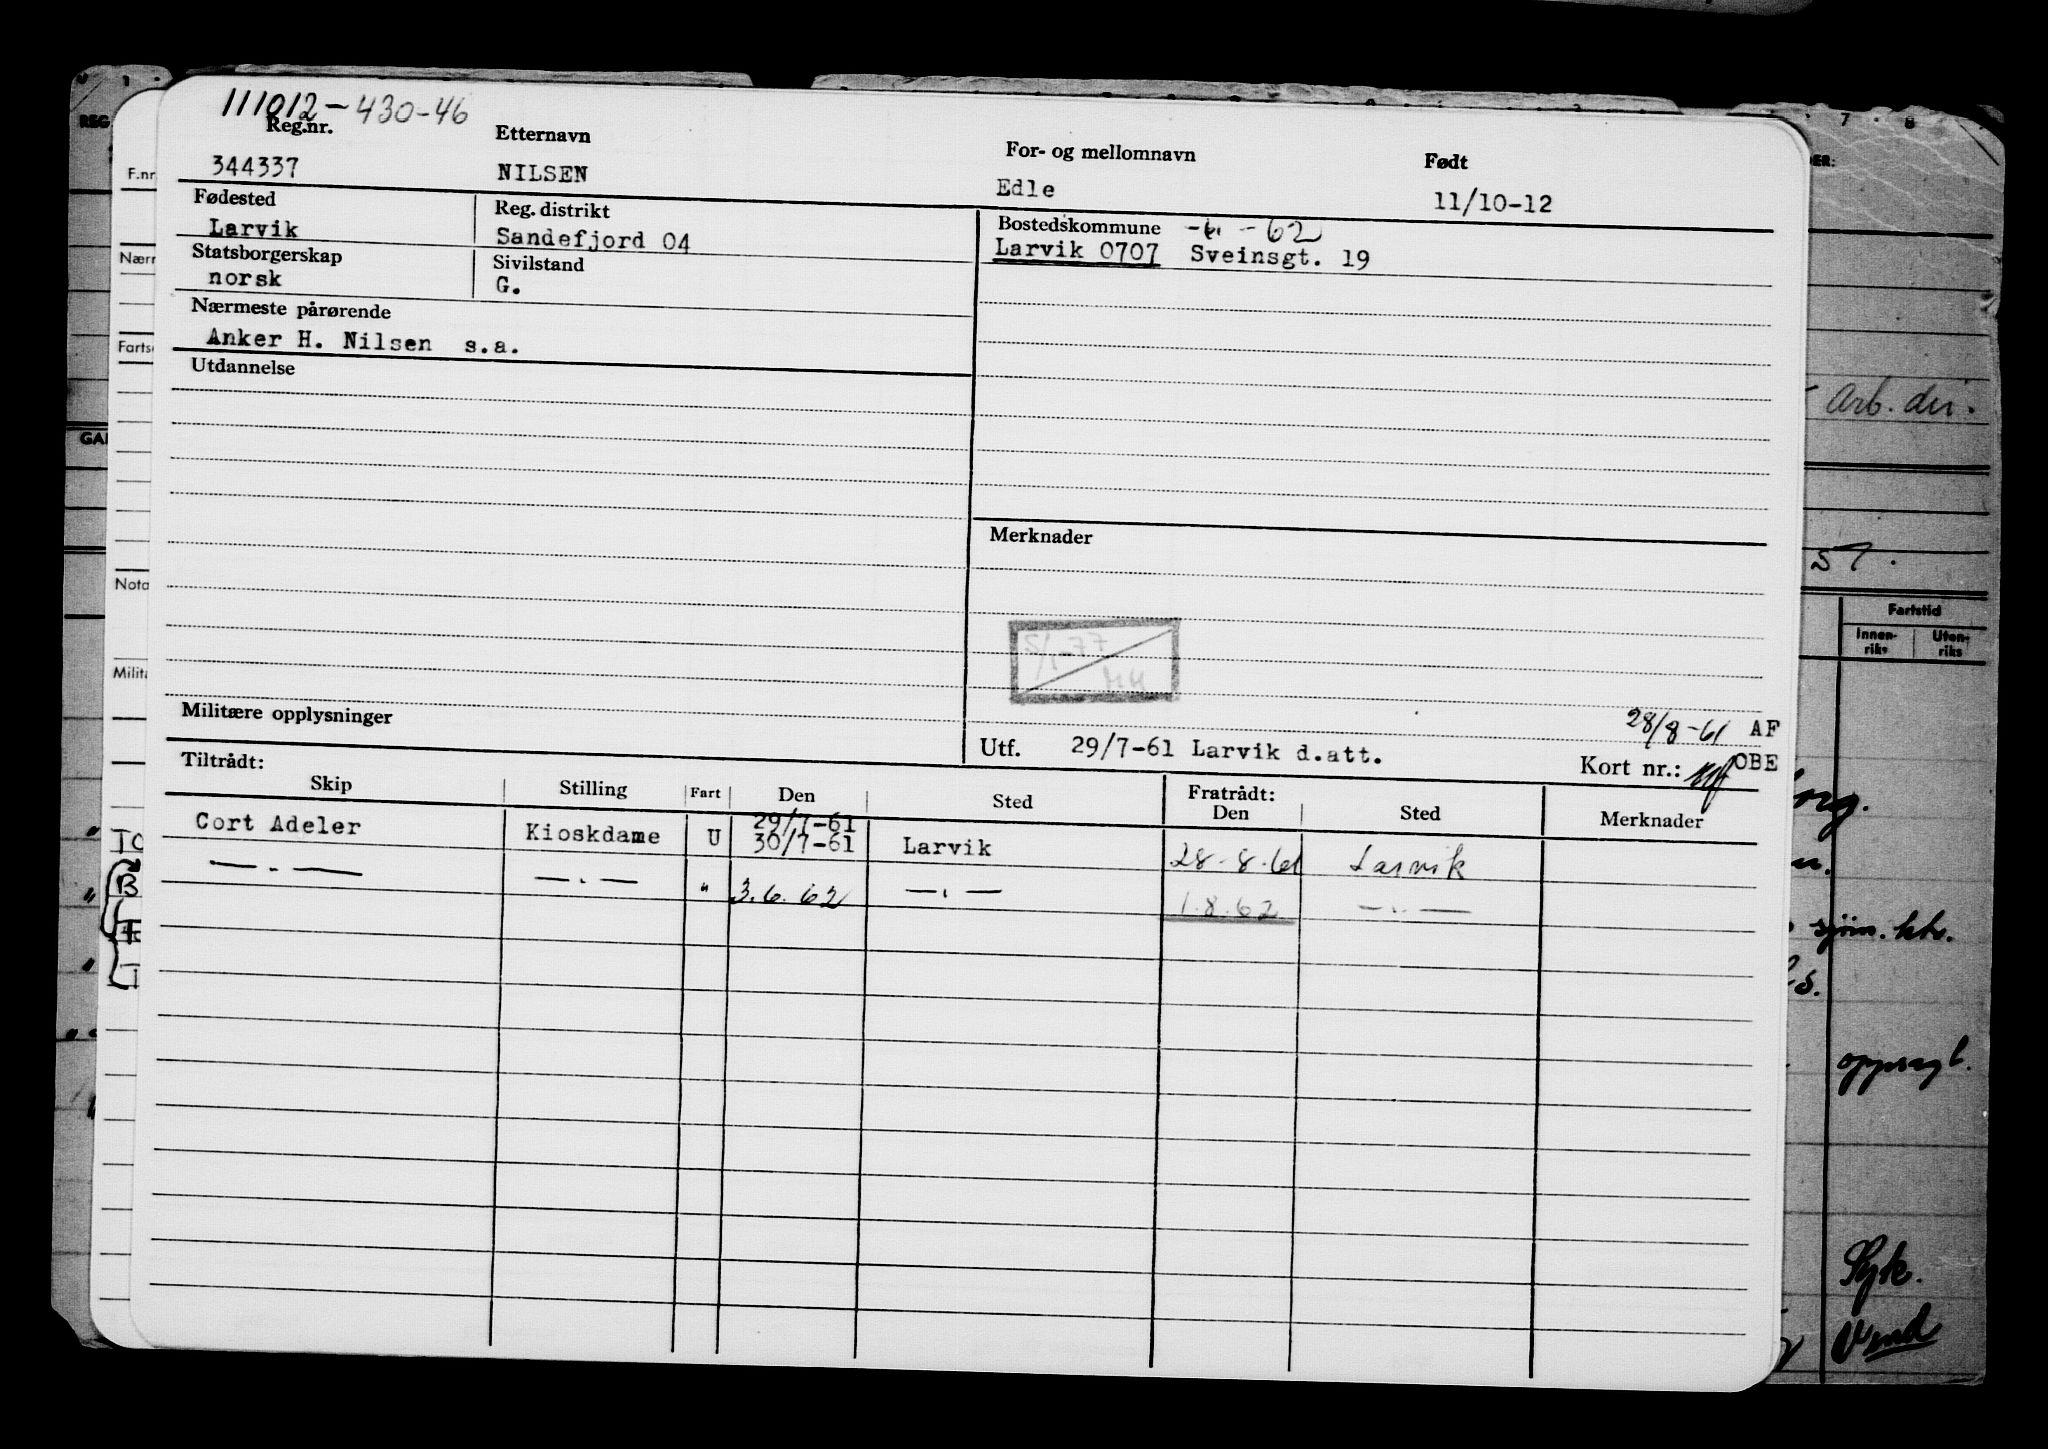 111012-430-46
Reg.nr. Etternavn For- og mellomnavn Født
344337 NILSEN Edle 11/10-12
Fødested Reg. distrikt Bostedskommune -61 -62
Larvik Sandefjord 04 Larvik 0707 Sveinsgt. 19
Statsborgerskap Sivilstand
norsk G.
Nærmeste pårørende
Anker H. Nilsen s.a.
Utdannelse
Merknader
5/1-77
Militære opplysninger
28/8-61 AF
Utf. 29/7-61 Larvik d.att. Kort nr.: OBE
Tiltrådt: Fratrådt:
Skip Stilling Fart Den Sted Den Sted Merknader
29/7-61
Cort Adeler Kioskdame U 30/7-61 Larvik 28-8-61 Larvik
— . — — . — " 3.6.62 — . — 1.8.62 — .. —
REG
F.nr
Nærm
Farts
GA
Nota
Milit
7 8
Arb. dir.
57.
Fartstid
Innen-riks Uten-riks
sjøm. ktr.
oppsagt.
Syk.
Vend